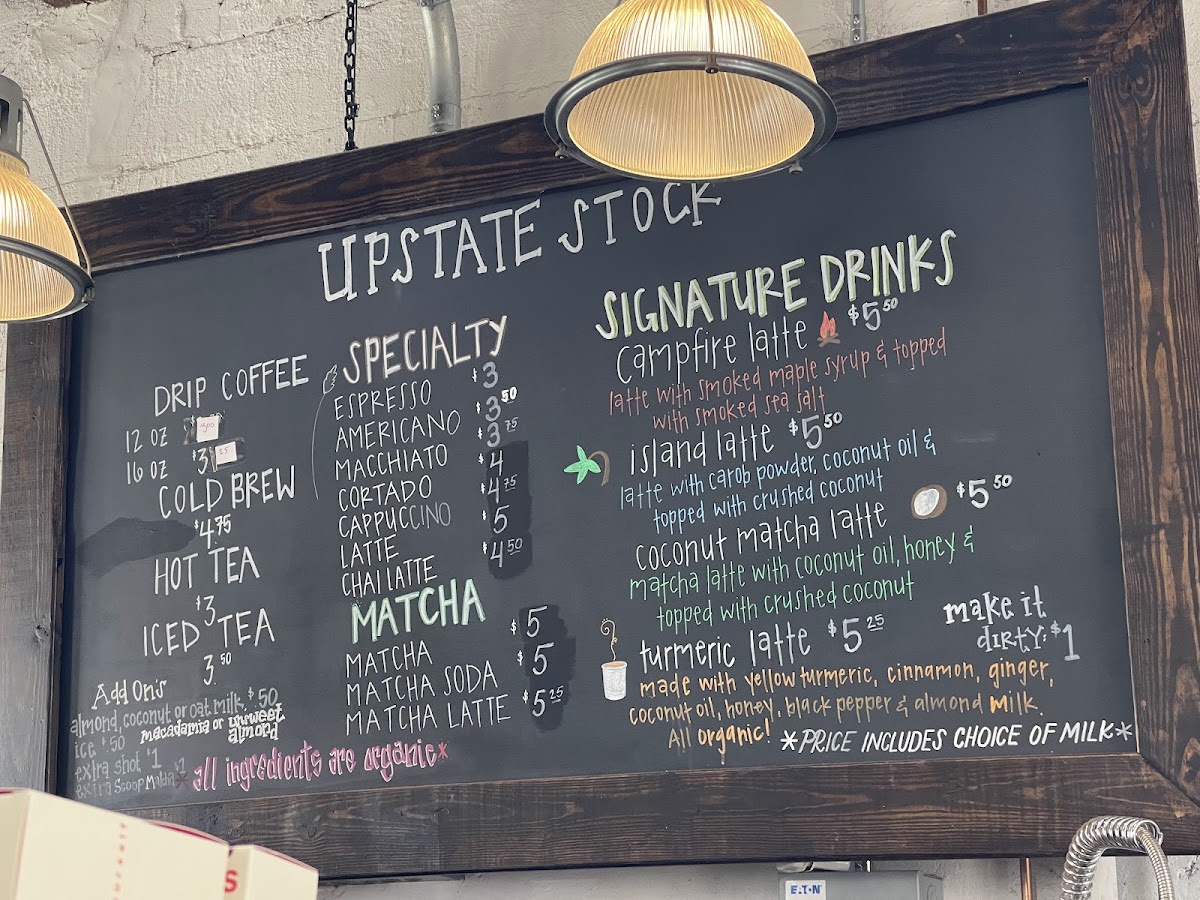 UPSTATE STOCK
DRIP COFFEE
12 OZ 3.00
16 OZ $3 25
COLD BREW
$4.75
HOT TEA
$3
ICED TEA
3.50
Add On's
almond, coconut or oat milk, $.50
macadamia or unsweet almond
ice $.50
extra shot $1
extra scoop Matcha $1
*all ingredients are organic*
SPECIALTY
ESPRESSO $3
AMERICANO $3 50
MACCHIATO $3 75
CORTADO $4
CAPPUCCINO $4 75
LATTE $5
CHAI LATTE $4 50
MATCHA
MATCHA $5
MATCHA SODA $5
MATCHA LATTE $5 25
SIGNATURE DRINKS
campfire latte $5 50
latte with smoked maple syrup & topped
with smoked sea salt
island latte $5 50
latte with carob powder, coconut oil &
topped with crushed coconut
coconut matcha latte $5 50
matcha latte with coconut oil, honey &
topped with crushed coconut
turmeric latte $5 25
make it
dirty: $1
made with yellow turmeric, cinnamon, ginger,
coconut oil, honey, black pepper & almond milk.
All organic!
*PRICE INCLUDES CHOICE OF MILK*
S
EATON